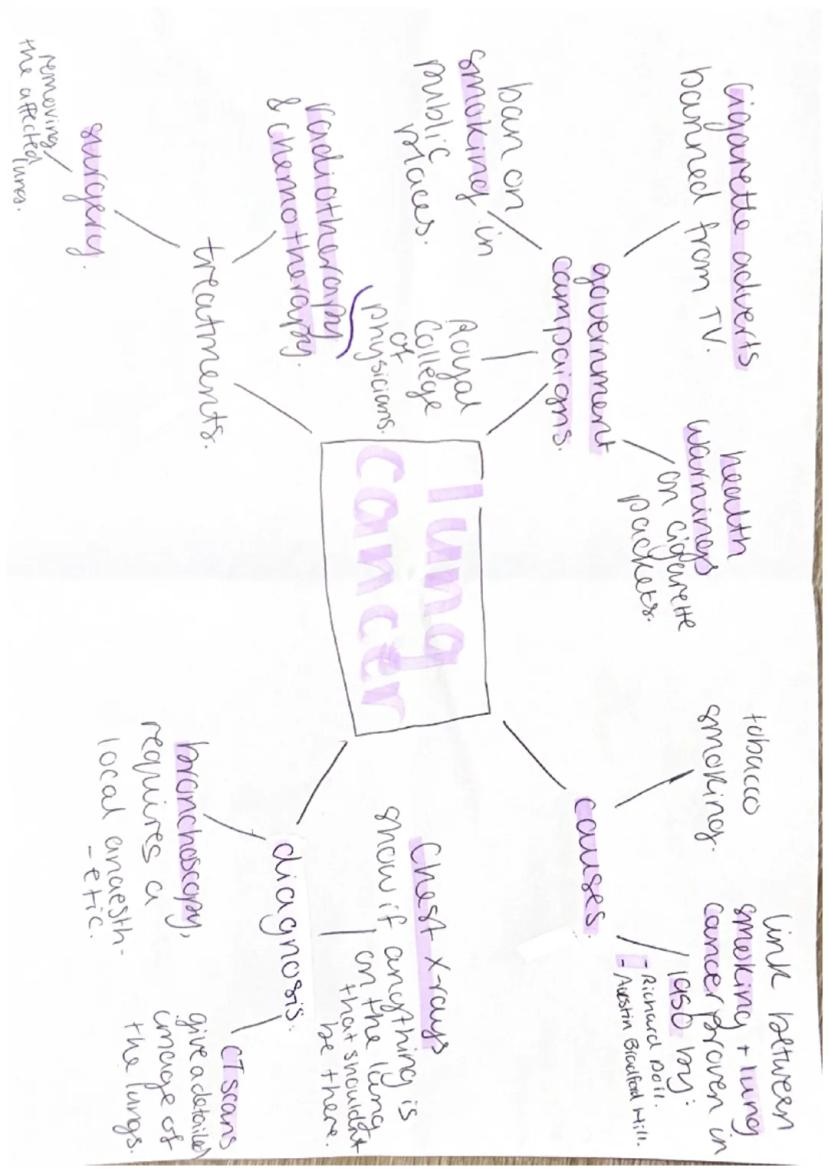 cigarette adverts
banned from TV.
health
warnings
on cigarette
packets.
government
campaigns.
ban on
smoking in
public
places.
Royal
College
of
Physicians.
lung
cancer
tobacco
smoking.
link between
smoking + lung
cancer proven in
1950 by:
- Richard Doll.
- Austin Bradford Hill.
causes.
radiotherapy
& chemotherapy.
treatments.
surgery.
removing
the affected
lungs.
Chest x-rays
show if anything is
on the lung
that shouldn't
be there.
diagnosis.
bronchoscopy,
requires a
local anaesth-
-etic.
CT scans
give a detailed
image of
the lungs.